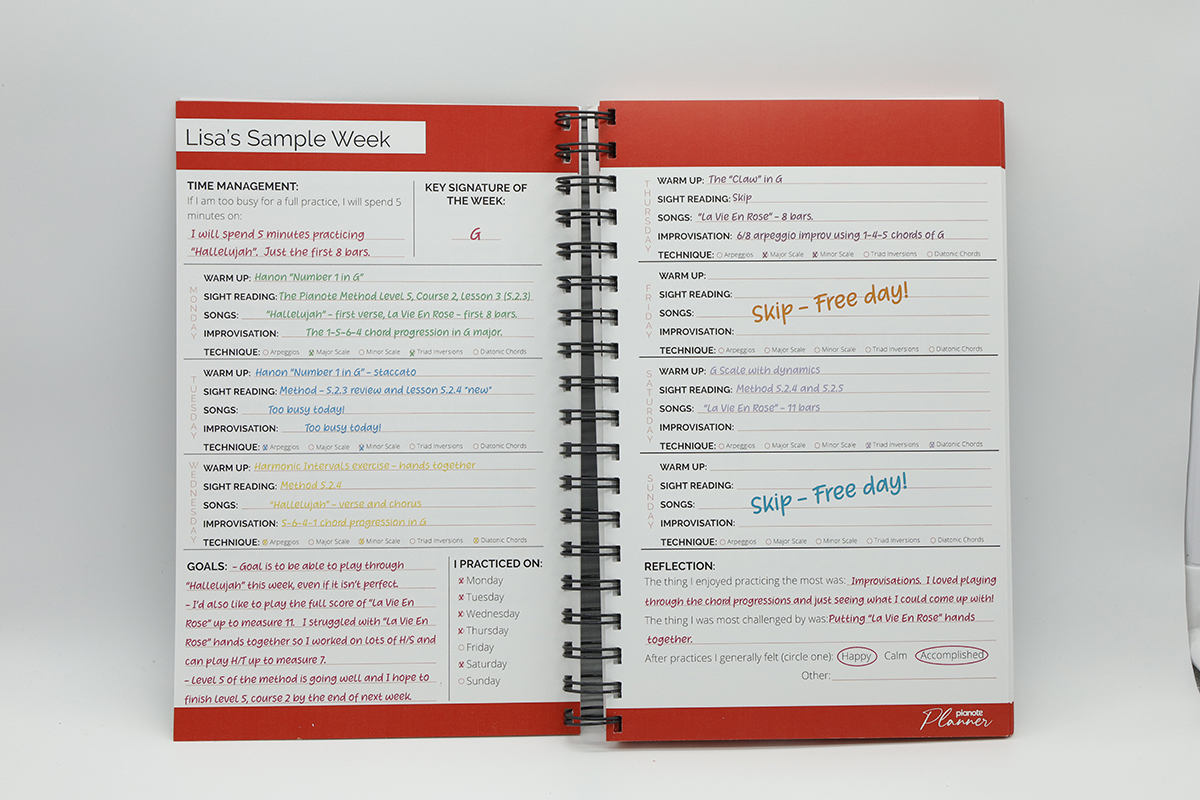 Lisa's Sample Week
TIME MANAGEMENT:
If I am too busy for a full practice, I will spend 5
minutes on:
I will spend 5 minutes practicing
"Hallelujah". Just the first 8 bars.
KEY SIGNATURE OF
THE WEEK:
G
MONDAY
WARM UP: Hanon "Number 1 in G"
SIGHT READING: The Pianote Method Level 5, Course 2, lesson 3 (5.2.3)
SONGS: "Hallelujah" - first verse, La Vie En Rose - first 8 bars.
IMPROVISATION: The 1-5-6-4 chord progression in G major.
TECHNIQUE: Arpeggios Major Scale Minor Scale Triad Inversions Diatonic Chords
TUESDAY
WARM UP: Hanon "Number 1 in G" - staccato
SIGHT READING: Method - 5.2.3 review and lesson 5.2.4 *new*
SONGS: Too busy today!
IMPROVISATION: Too busy today!
TECHNIQUE: Arpeggios Major Scale Minor Scale Triad Inversions Diatonic Chords
WEDNESDAY
WARM UP: Harmonic Intervals exercise - hands together
SIGHT READING: Method 5.2.4
SONGS: "Hallelujah" - verse and chorus
IMPROVISATION: 5-6-4-1 chord progression in G
TECHNIQUE: Arpeggios Major Scale Minor Scale Triad Inversions Diatonic Chords
GOALS: - Goal is to be able to play through
"Hallelujah" this week, even if it isn't perfect.
- I'd also like to play the full score of "La Vie En
Rose" up to measure 11. I struggled with "La Vie En
Rose" hands together so I worked on lots of H/S and
can play H/T up to measure 7.
- Level 5 of the method is going well and I hope to
finish level 5, course 2 by the end of next week.
I PRACTICED ON:
Monday
Tuesday
Wednesday
Thursday
Friday
Saturday
Sunday
THURSDAY
WARM UP: The "Claw" in G
SIGHT READING: Skip
SONGS: "La Vie En Rose" - 8 bars.
IMPROVISATION: 6/8 arpeggio improv using 1-4-5 chords of G
TECHNIQUE: Arpeggios Major Scale Minor Scale Triad Inversions Diatonic Chords
FRIDAY
WARM UP:
SIGHT READING:
Skip - Free day!
SONGS:
IMPROVISATION:
TECHNIQUE: Arpeggios Major Scale Minor Scale Triad Inversions Diatonic Chords
SATURDAY
WARM UP: G Scale with dynamics
SIGHT READING: Method 5.2.4 and 5.2.5
SONGS: "La Vie En Rose" - 11 bars
IMPROVISATION:
TECHNIQUE: Arpeggios Major Scale Minor Scale Triad Inversions Diatonic Chords
SUNDAY
WARM UP:
SIGHT READING:
Skip - Free day!
SONGS:
IMPROVISATION:
TECHNIQUE: Arpeggios Major Scale Minor Scale Triad Inversions Diatonic Chords
REFLECTION:
The thing I enjoyed practicing the most was: Improvisations. I loved playing
through the chord progressions and just seeing what I could come up with!
The thing I was most challenged by was: Putting "La Vie En Rose" hands
together.
After practices I generally felt (circle one): Happy Calm Accomplished
Other:
pianote
Planner